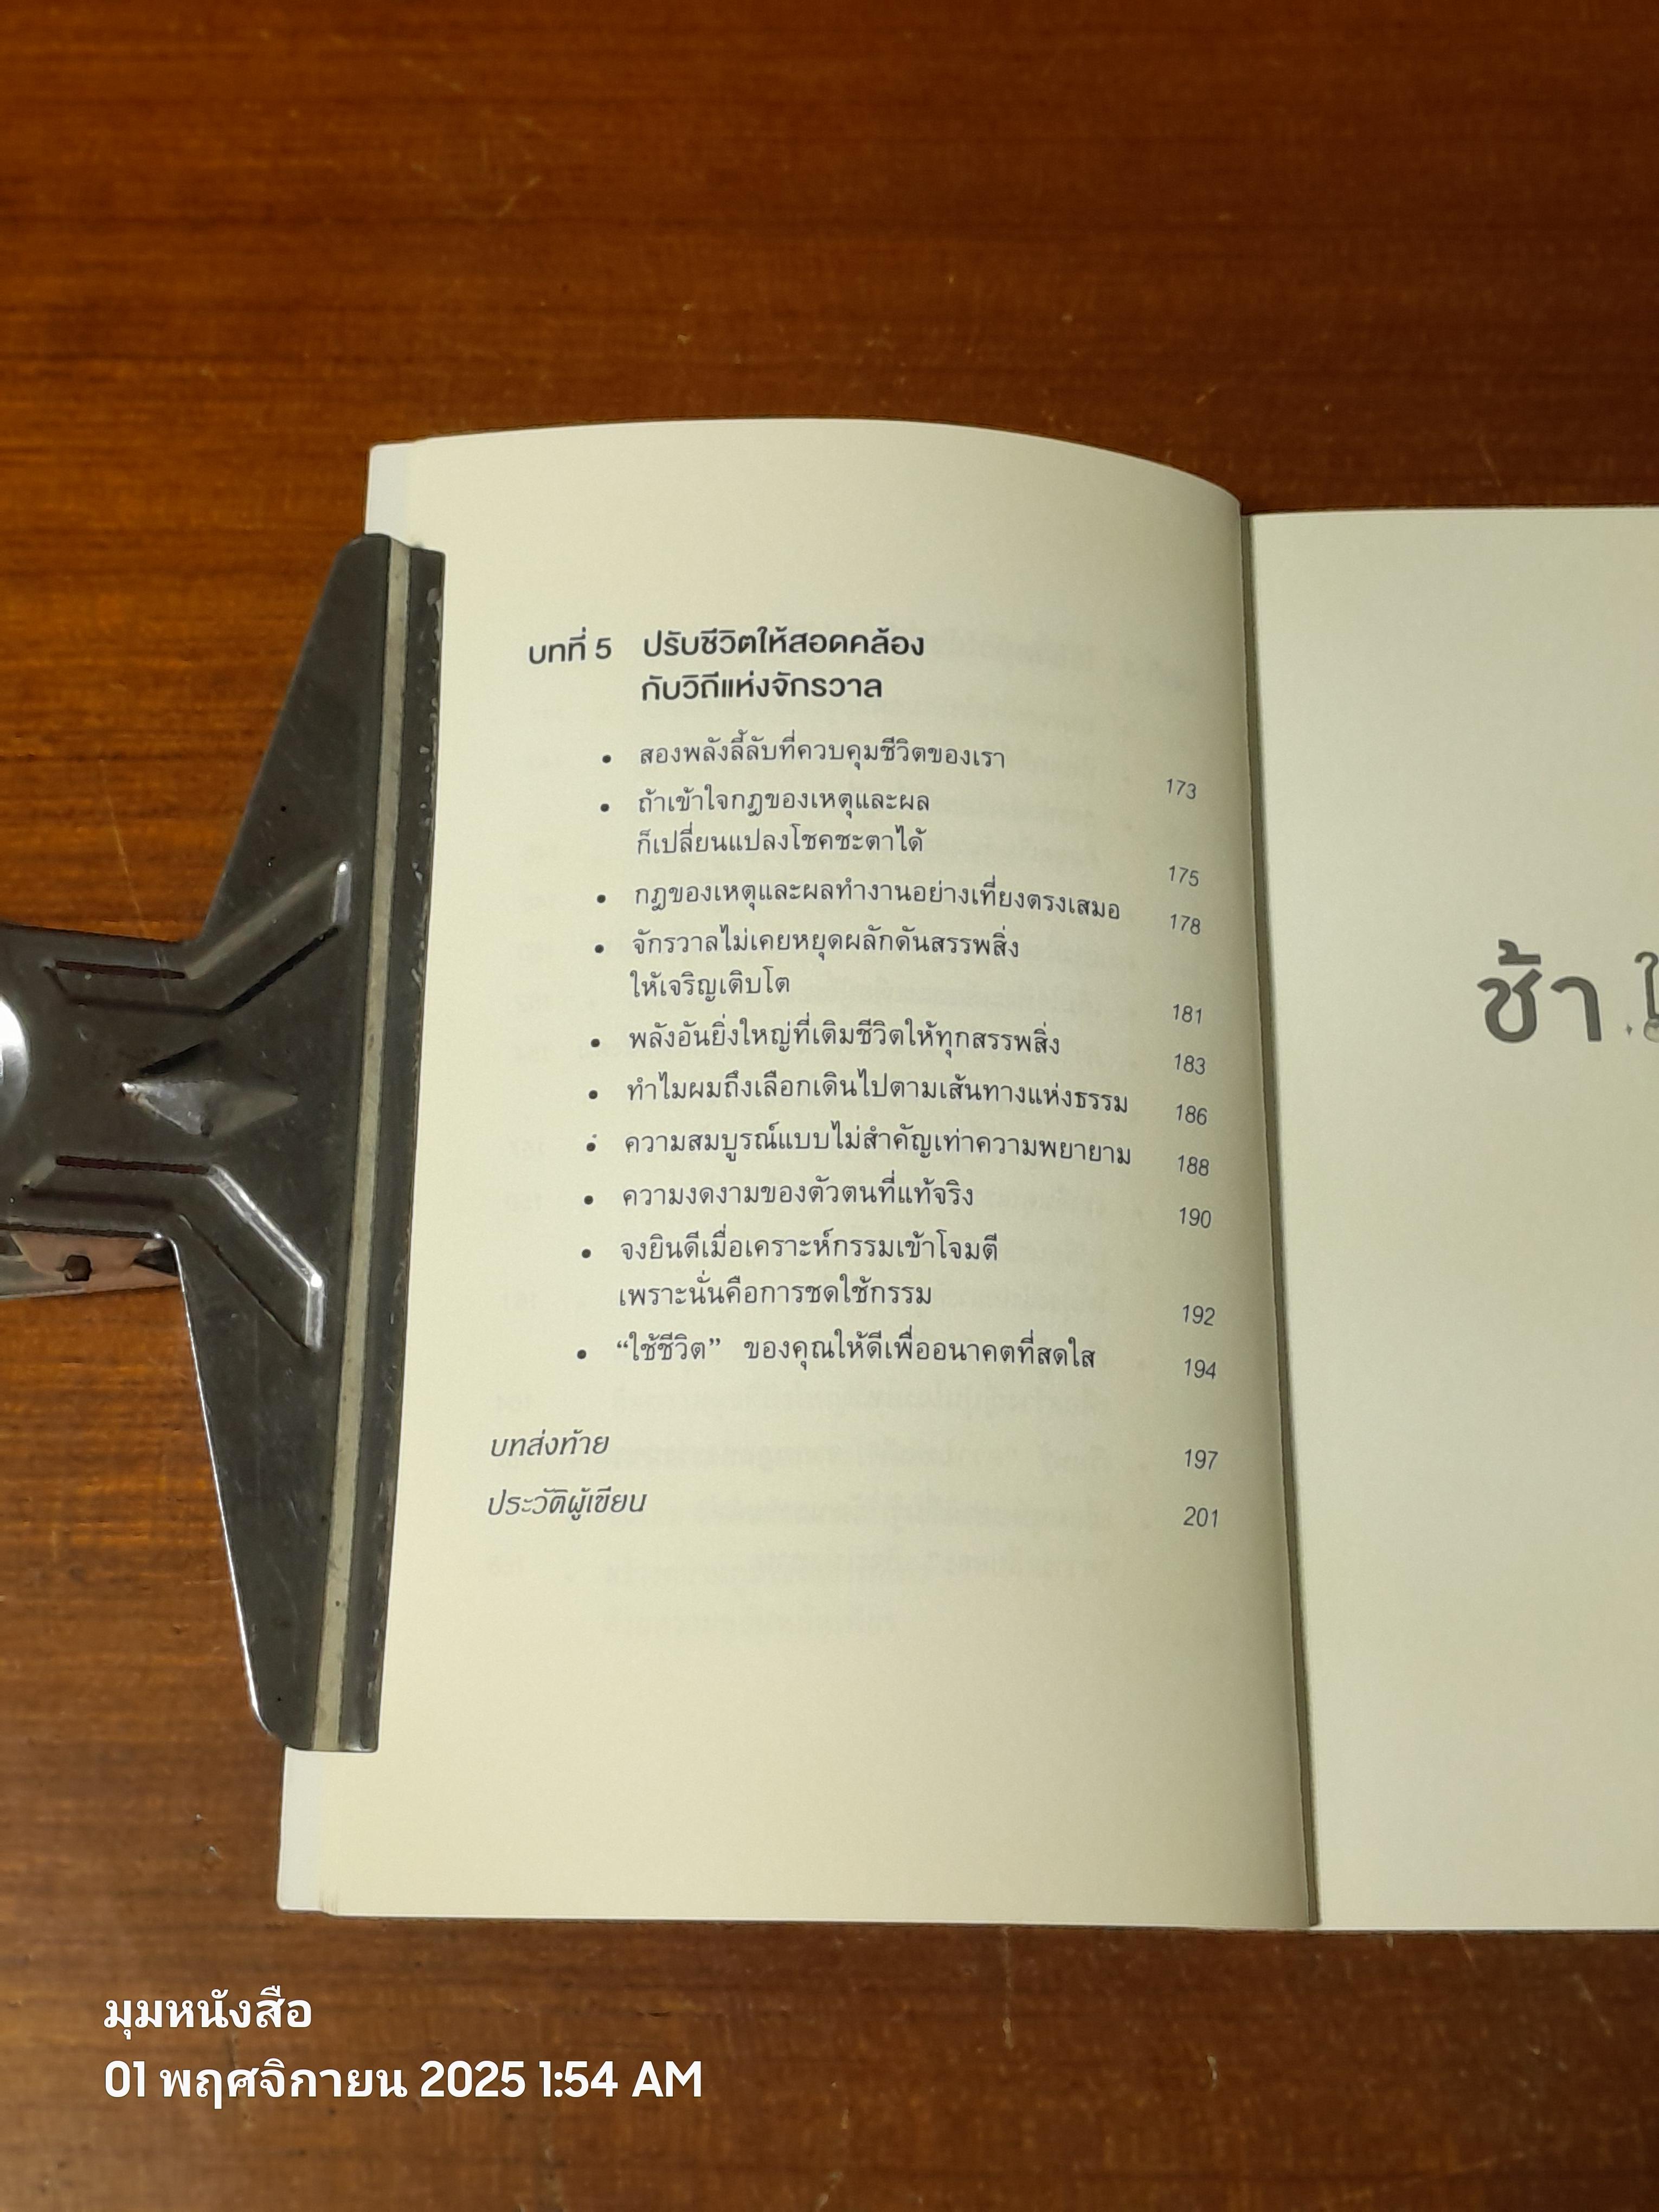 บทที่ 5 ปรับชีวิตให้สอดคล้อง
กับวิถีแห่งจักรวาล
• สองพลังลี้ลับที่ควบคุมชีวิตของเรา 173
• ถ้าเข้าใจกฎของเหตุและผล
ก็เปลี่ยนแปลงโชคชะตาได้ 175
• กฎของเหตุและผลทำงานอย่างเที่ยงตรงเสมอ 178
• จักรวาลไม่เคยหยุดผลักดันสรรพสิ่ง
ให้เจริญเติบโต 181
• พลังอันยิ่งใหญ่ที่เติมชีวิตให้ทุกสรรพสิ่ง 183
• ทำไมผมถึงเลือกเดินไปตามเส้นทางแห่งธรรม 186
• ความสมบูรณ์แบบไม่สำคัญเท่าความพยายาม 188
• ความงดงามของตัวตนที่แท้จริง 190
• จงยินดีเมื่อเคราะห์กรรมเข้าโจมตี
เพราะนั่นคือการชดใช้กรรม 192
• “ใช้ชีวิต” ของคุณให้ดีเพื่ออนาคตที่สดใส 194
บทส่งท้าย 197
ประวัติผู้เขียน 201
ช้า
มุมหนังสือ
01 พฤศจิกายน 2025 1:54 AM